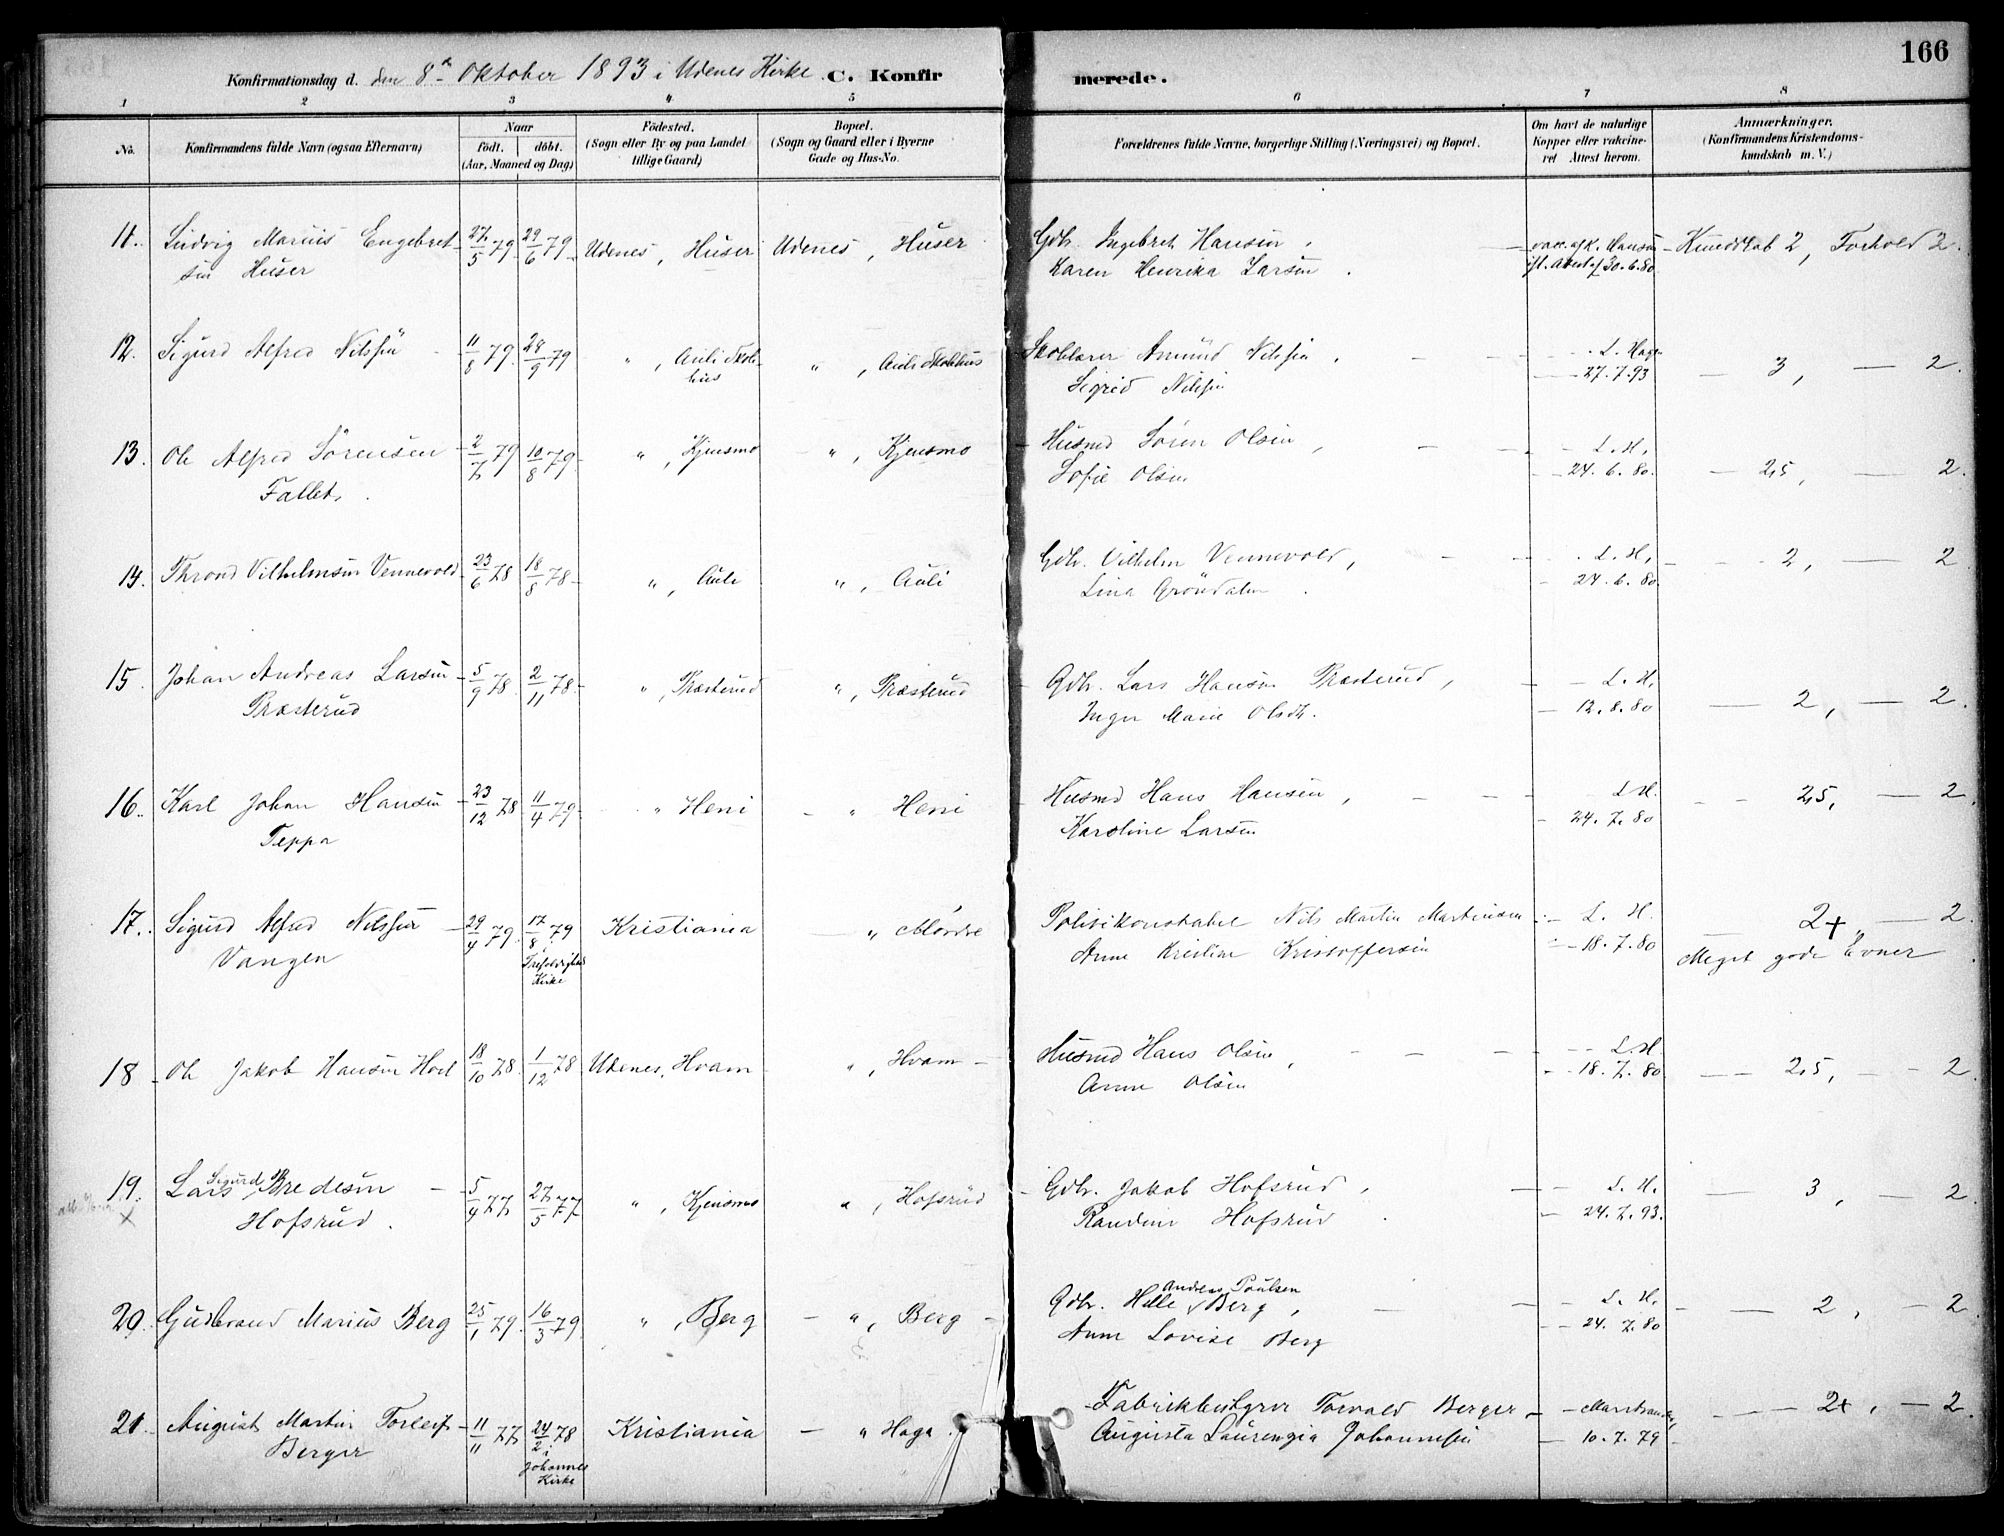 166
Konfirmationsdag d. den 8de Oktober 1893 i Udenes Kirke. C. Konfirmerede.
1 2 3 4 5 6 7 8
No. Konfirmandens fulde Navn (ogsaa Efternavn) Naar født. døbt. (Aar, Maaned og Dag) Fødested. (Sogn eller By og paa Landet tillige Gaard) Bopæl. (Sogn og Gaard eller i Byerne Gade og Hus-No. Forældrenes fulde Navne, borgerlige Stilling (Næringsvei) og Bopæl. Om havt de naturlige Kopper eller vakcineret Attest herom. Anmærkninger. (Konfirmandens Kristendomskundskab m. V.)
11. Ludvig Marius Engebret- 27/5 79 29/6 79 Udenes, Huser Udenes, Huser Gdbr. Ingebret Hansen, vacc. af K. Hansen Kundskab 2, Forhold 2.
sen Huser Karen Henrika Larsen. ifl. Attest af 30.6.80
12. Sigurd Alfred Nilssen 11/8 79 28/9 79 " , Auli Skole- " , Auli Skolehus Skolelærer Amund Nilssen, L. Hagen 3, 2.
hus Sigrid Nilssen 27.7.93
13. Ole Alfred Sörensen 2/7 79 10/8 79 " , Kjensmo " , Kjensmo Husmd Sören Olsen, L. H. 2,5, 2.
Fallet. Sofie Olsen 24.6.80.
14. Thrond Vilhelmsen Vennevold 23/6 78 18/8 78 " , Auli " , Auli Gdbr. Vilhelm Vennevold, L. H. 2, 2
Lina Gröndalen. 24.6.80.
15. Johan Andreas Larsen 5/9 78 2/11 78 " , Præsterud " , Præsterud Gdbr. Lars Hansen Præsterud, L. H. 2, 2.
Præsterud Inger Marie Olsdtr. 12.8.80
16. Karl Johan Hansen 23/12 78 11/4 79 " Heni " Heni Husmd Hans Hansen, L. H. 2,5, 2.
Teppa Karoline Larsen 24.7.80
17. Sigurd Alfred Nilssen 29/4 79 17/8 79 Kristiania " Mördre Politikonstabel Nils Martin Martinsen L. H. 2+ 2.
Vangen i Trefoldigheds Kirke Anne Kristine Kristoffersen 18.7.80 Meget gode Evner.
18 Ole Jakob Hansen Hvol 18/10 78 1/12 78 Udenes, Hvam " , Hvam Husmd Hans Olsen, L. H. 2,5, 2.
Anne Olsen 18.7.80
19. Lars Sigurd Bredesen 5/4 77 27/5 77 " , Kjensmo " , Hofsrud Gdbr. Jakob Hofsrud, L. H. 3, 2.
Hofsrud. Randine Hofsrud. 24.7.93.
20. Gudbrand Marius Berg 25/1 79 16/3 79 " , Berg " , Berg Gdbr. Helle Andreas Poulsen Berg, L. H. 2, 2
Anne Lovise Berg 24.7.80
21. August Martin Torleif 11/11 77 24/2 78 Kristiania " Haga. Torvald Berger 2+, 2.
Berger i Johannes Kirke Augusta Laurengia Johannesen 10.7.79